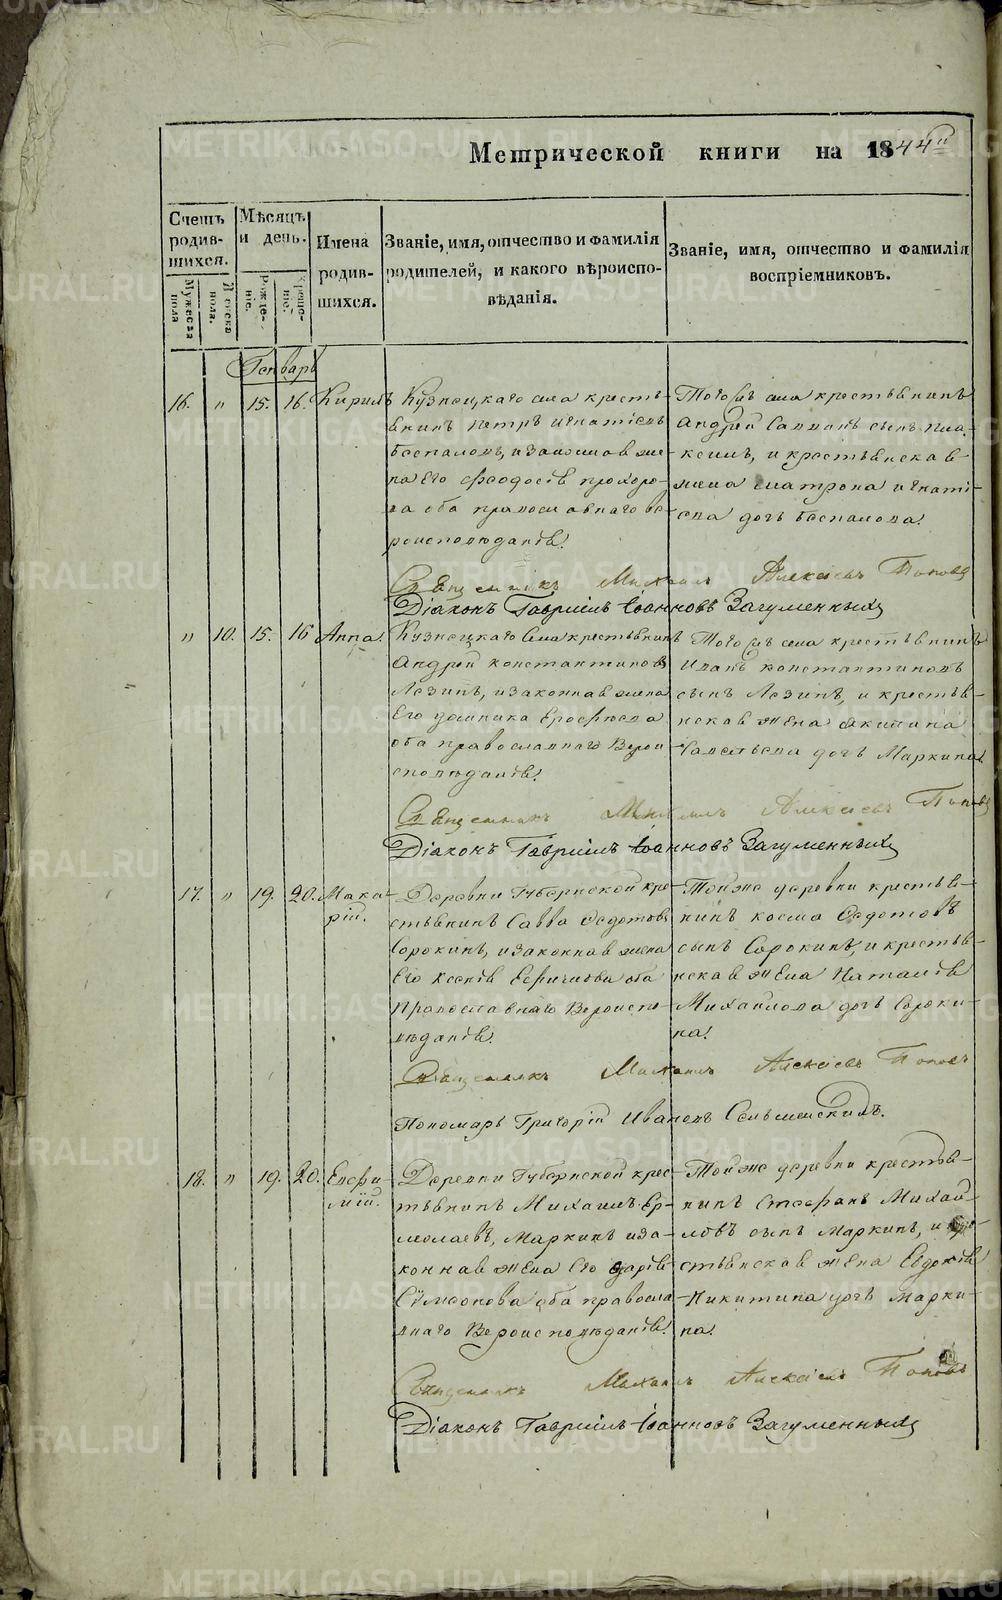 Метрической книги на 1844й
Счетъ родив-шихся.
Мужеска пола
Женска пола.
Мѣсяцъ и день.
Рожде-ніе.
Креще-ніе.
Имена родив-шихся.
Званіе, имя, отчество и фамилія родителей, и какого вѣроиспо-вѣданія.
Званіе, имя, отчество и фамилія воспріемниковъ.
Генварь
16. „ 15. 16. Кирилъ
Кузнецкаго села кресть-
янинъ Петръ Игнатіевъ
Беспаловъ, и законная же-
на Его Феодосія Прохоро-
ва оба православнаго вѣ-
роисповѣданія.
Того же села крестьянинъ
Андрей
ксимъ, и крестьянская
жена Матрона Игнаті-
ева дочь Беспалова.
Священникъ Михаилъ Алексіевъ Поповъ
Діаконъ Гавріилъ Іоанновъ Загуменныхъ
„ 10. 15. 16 Анна.
Кузнецкаго Села крестьянинъ
Андрей Константиновъ
Лезинъ, и законная жена
Его Домника Ерофѣева
оба православнаго Верои
сповѣданія.
Того же села крестьянинъ
Иванъ Константиновъ
сынъ Лезинъ, и крестья-
нская жена Акилина
Савельева дочь Маркина
Священникъ Михаилъ Алексіевъ Поповъ
Діаконъ Гавріилъ Іоанновъ Загуменныхъ
17. „ 19. 20. Мака-
рій.
Деревни Губернской кре-
стьянинъ Савва Федотовъ
Сорокинъ, и законная жена
Его Ксенія
оба
Православнаго Вероиспо-
вѣданія.
Той же деревни крестья-
нинъ Косма Федотовъ
сынъ Сорокинъ, и крестья-
нская жена Наталія
Михайлова дочь Сороки-
на.
Священникъ Михаилъ Алексіевъ Поповъ
Пономарь Григорій Ивановъ
18. „ 19. 20. Евфи-
мій.
Деревни Губернской крес-
тьянинъ Михаилъ Ер-
молаевъ, Маркинъ и за-
конная жена Его Дарія
Симеонова оба правосла
внаго Вероисповѣданія.
Той же деревни крестья-
нинъ Стефанъ Михай-
ловъ сынъ Маркинъ, и кре-
стьянская жена Евдокія
Никитина дочь Марки-
на.
Священникъ Михаилъ Алексіевъ Поповъ
Діаконъ Гавріилъ Іоанновъ Загуменныхъ
METRIKI.GASO-URAL.RU